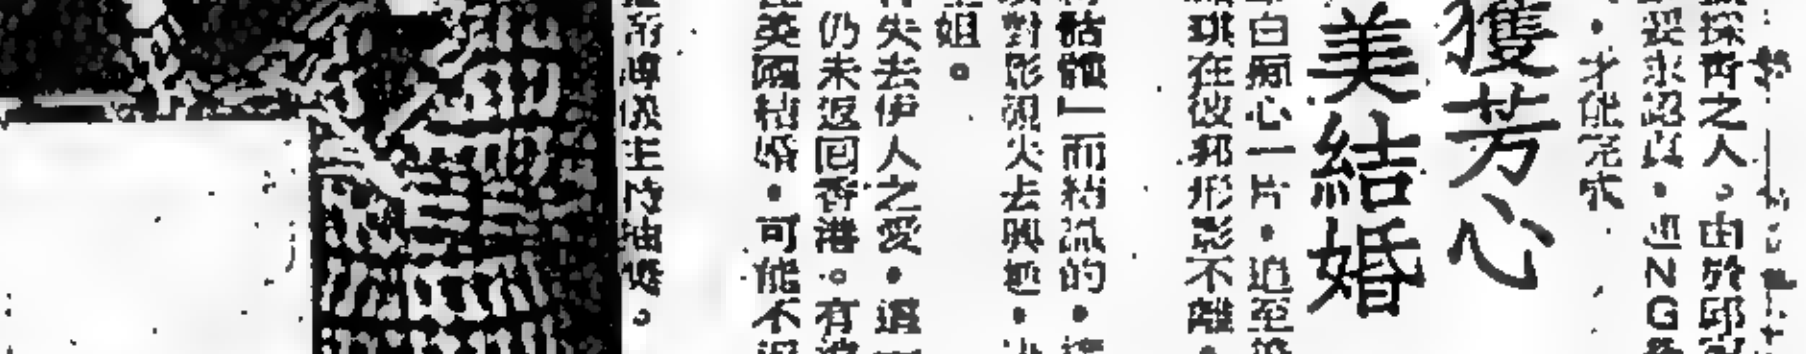 採青之人。由於邱
要求認真・連NG
・才能完成
獲芳心
美結婚
白痴心一片・追至
琪在彼邦形影不離・
骷髏」而結識的・
對影視失去興趣・
姐。
失去伊人之愛・
仍未返回香港。有
英國結婚・可能不
主持抽獎。